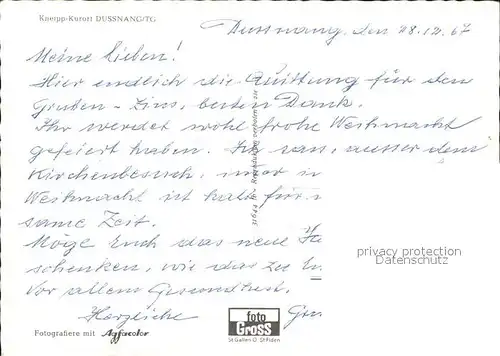 Kneipp-Kurort DUSSNANG/TG
Dussnang, den 28.12.67
Meine Lieben!
Hier endlich die Quittung für den
Gruben-Zins, besten Dank.
Ihr werdet wohl frohe Weihnacht
gefeiert haben. Ich sass, ausser dem
Kirchenbesuch, immer in
Weihnacht ist halt für
same Zeit.
Möge Euch das neue
schenken, wie das zu
Vor allem Gesundheit.
Herzliche
privacy protection
Datenschutz
foto
GROSS
St Gallen O St Fiden
Fotografiere mit Agfacolor